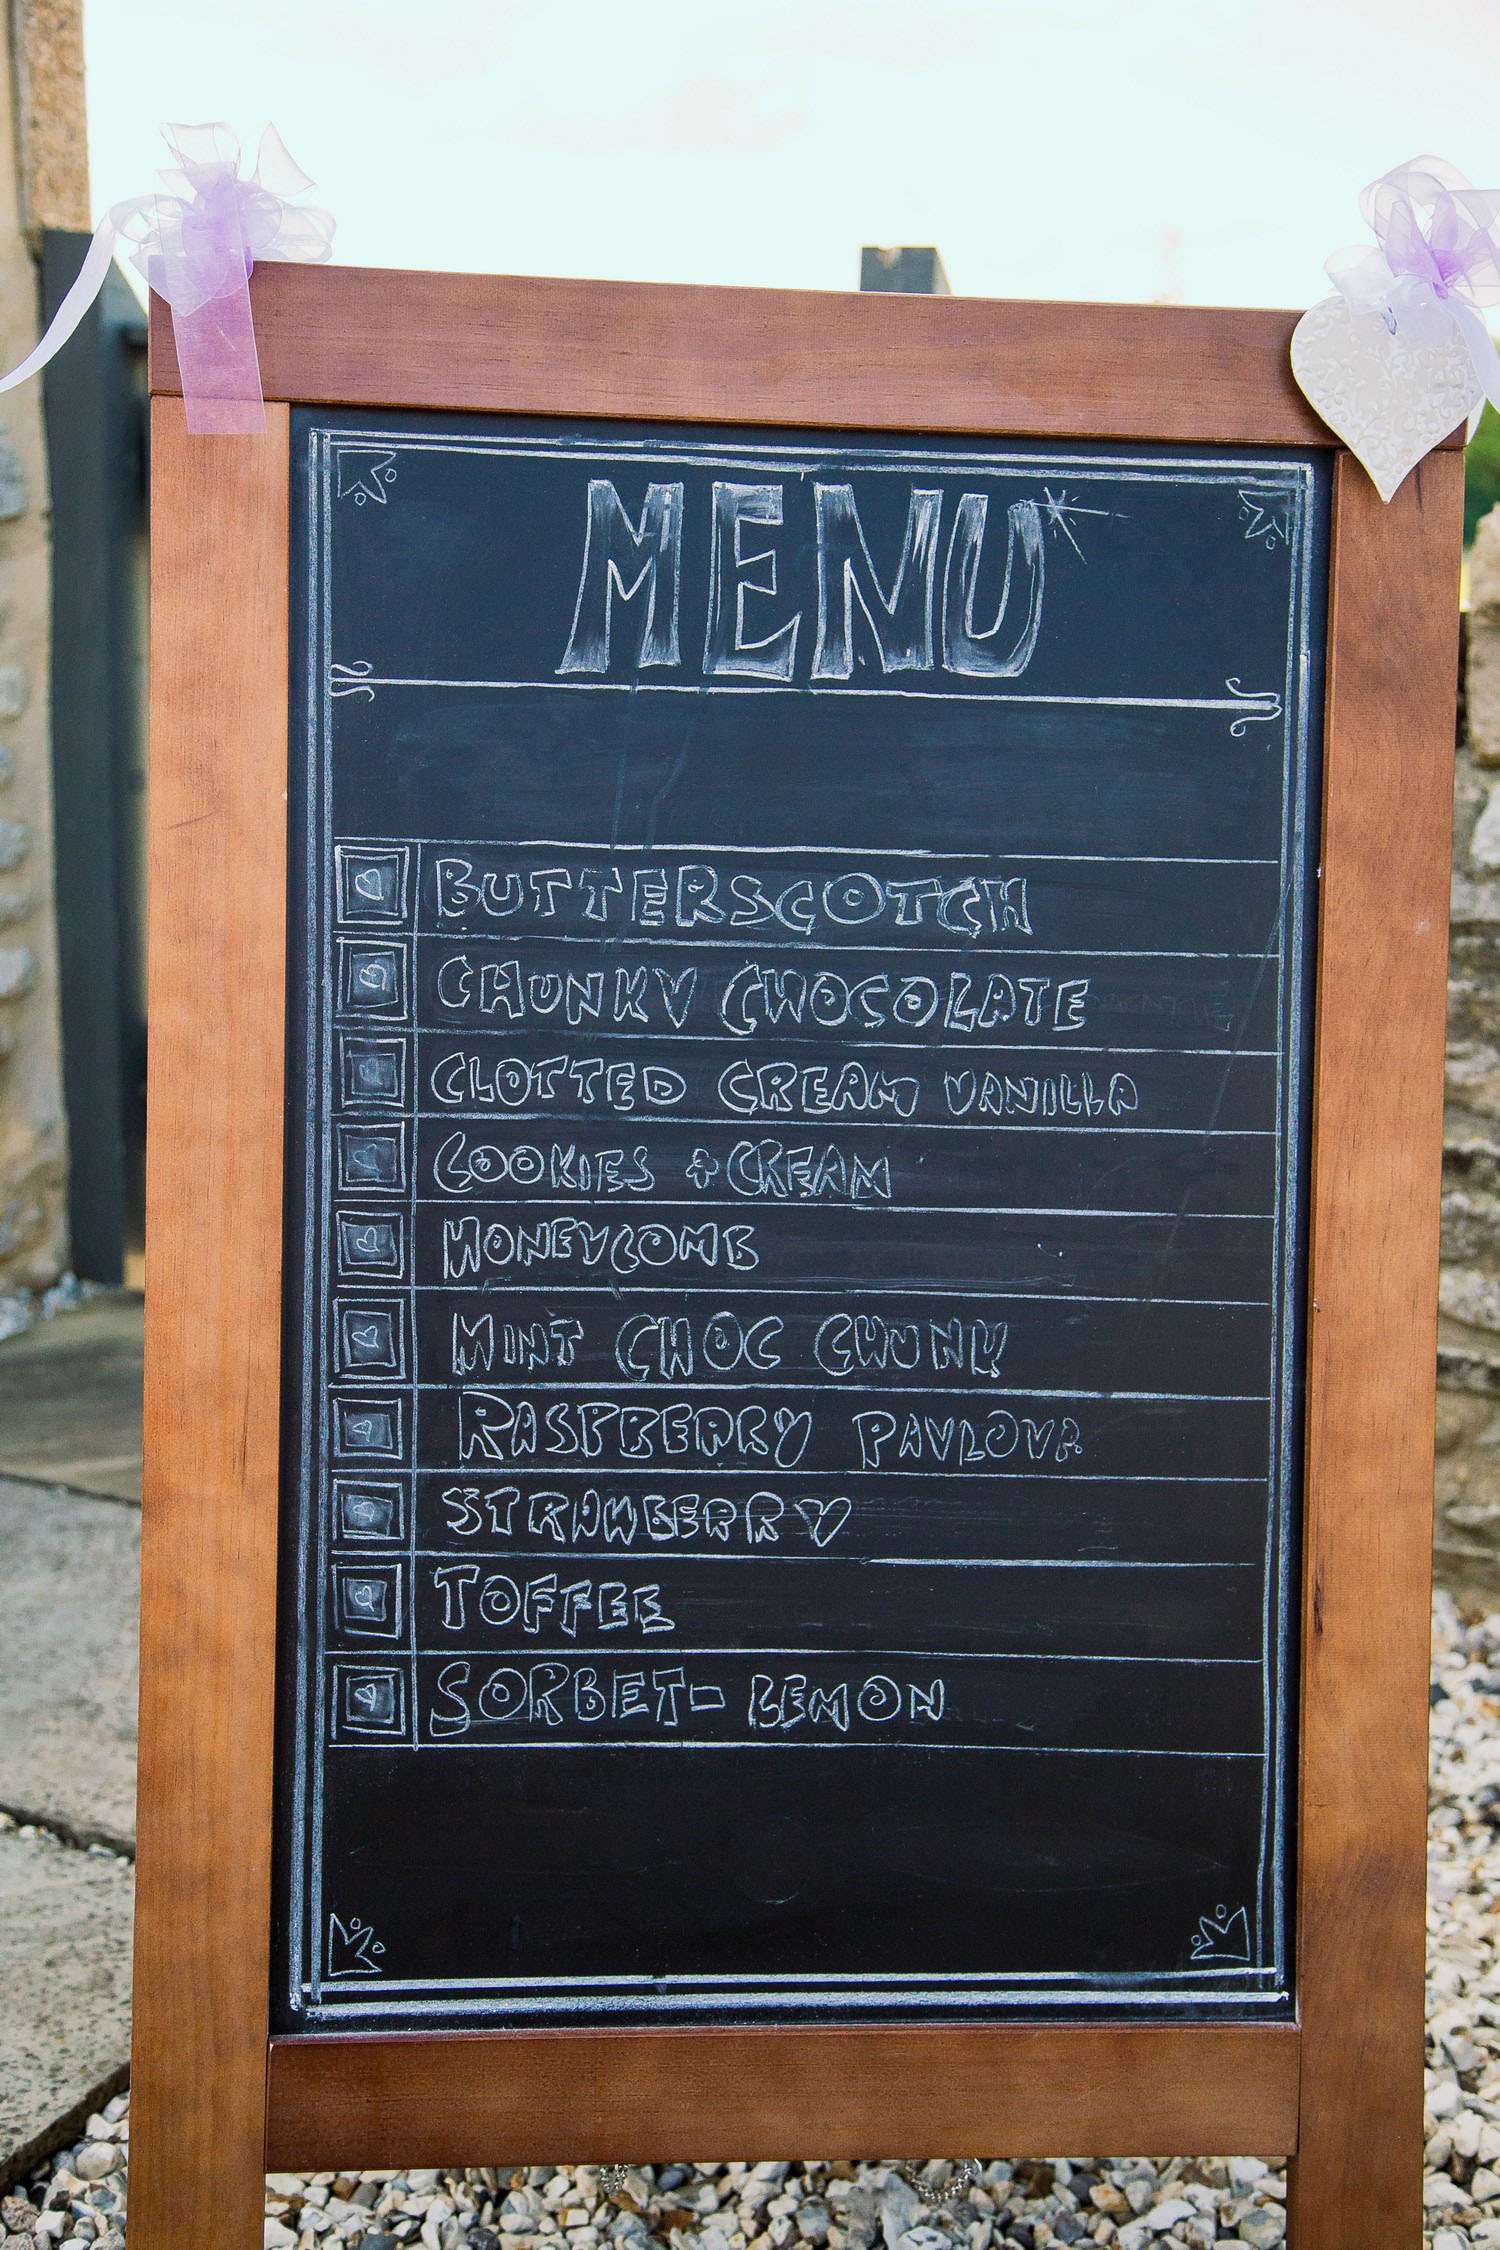 MENU
BUTTERSCOTCH
CHUNKY CHOCOLATE
CLOTTED CREAM VANILLA
COOKIES + CREAM
HONEYCOMB
MINT CHOC CHUNK
RASPBERRY PAVLOVA
STRAWBERRY
TOFFEE
SORBET- LEMON